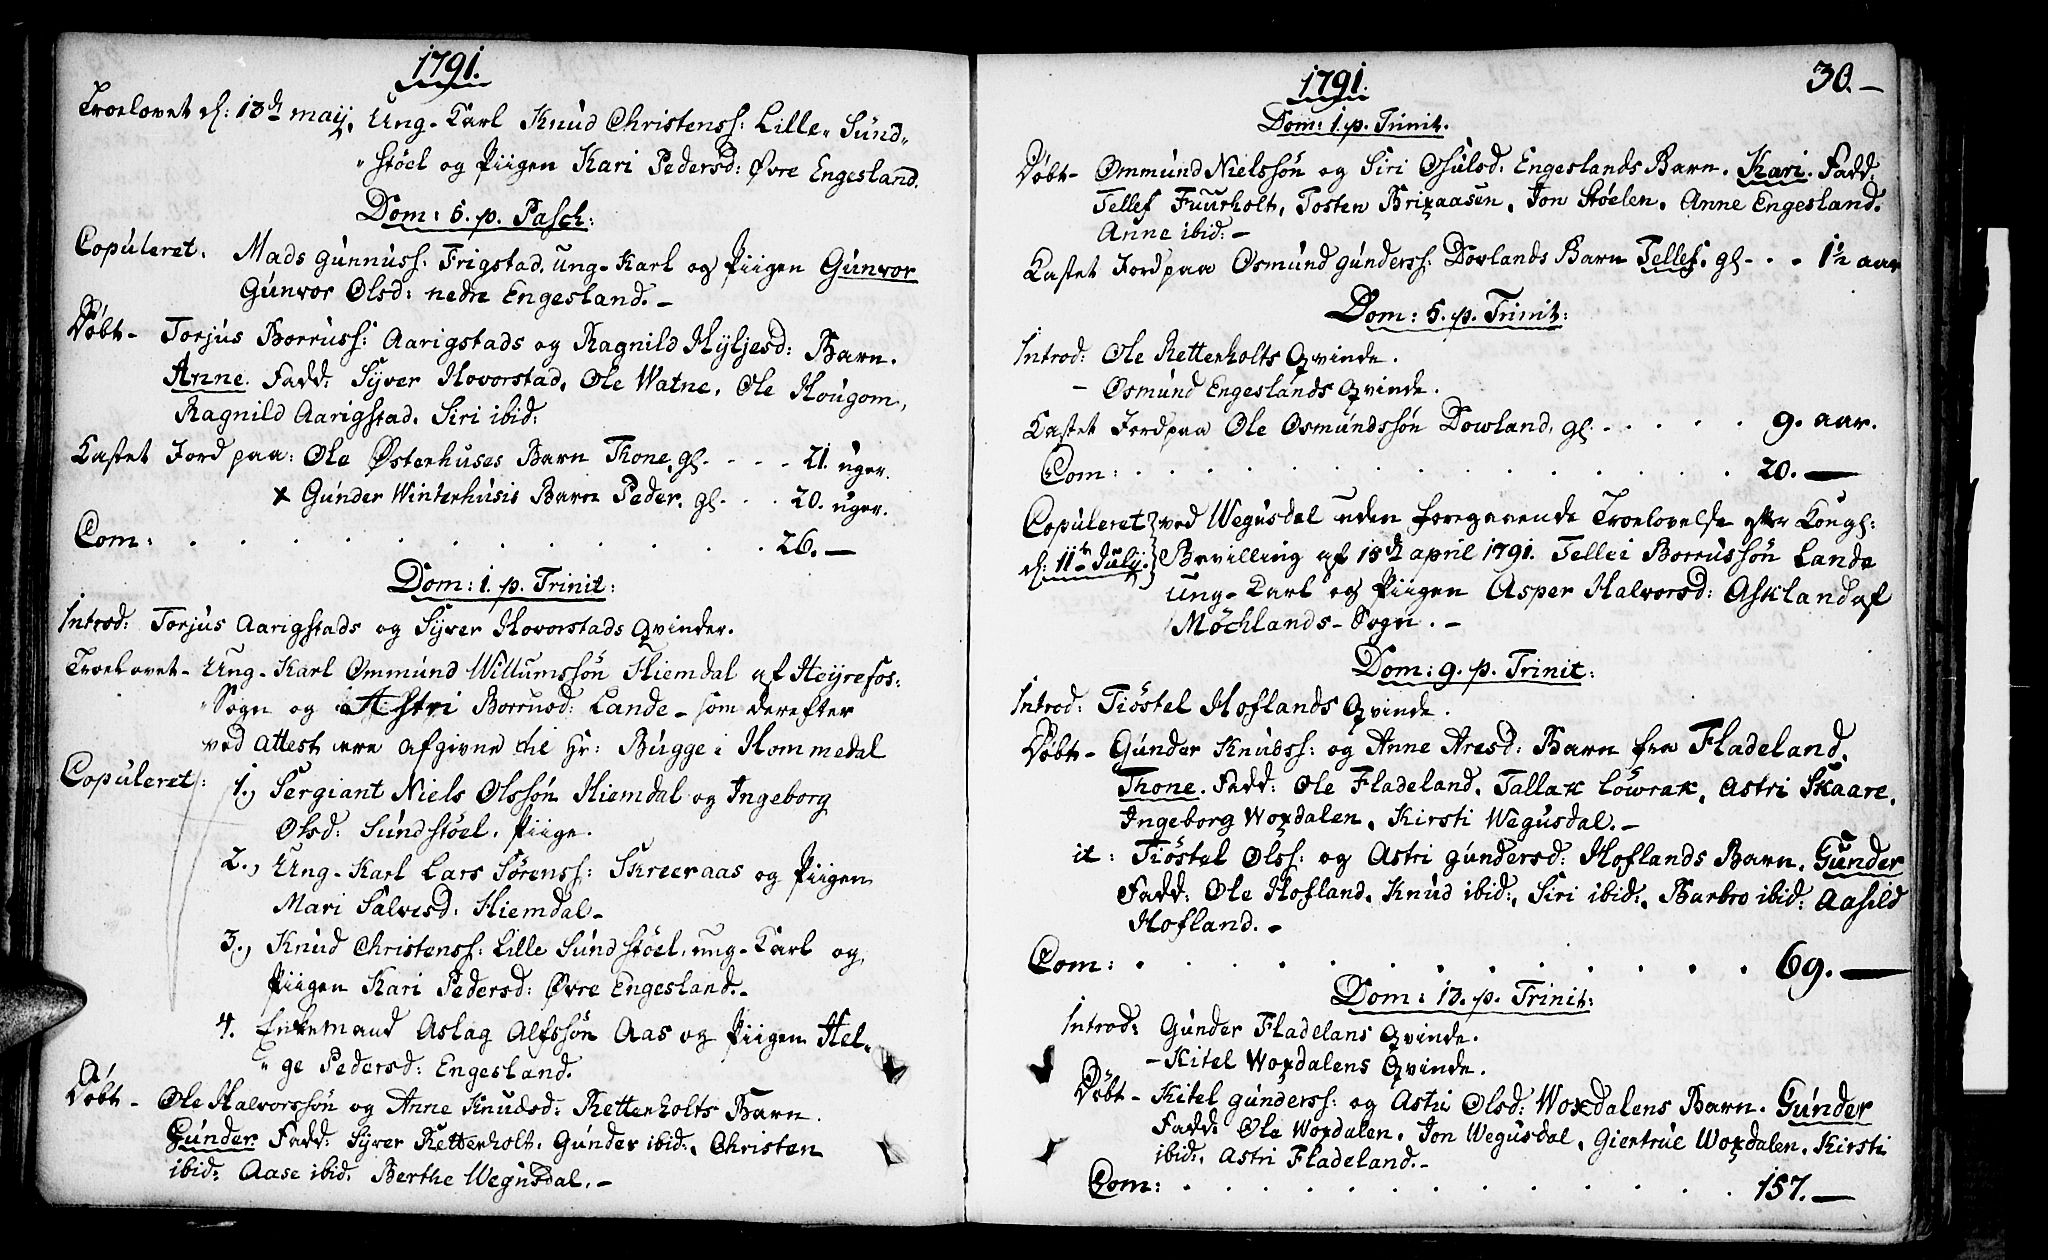 1791.
Troelovet d: 13d maij. Ung-Karl Knud Christenss: Lille-Sund-
"støel og Piigen Kari Pedersd: Øvre Engesland.
Dom: 5. p. Pasch:
Copuleret. Mads Gunnuss: Frigstad. ung-Karl og Piigen Gunvor
Gunvor Olsd: nedre Engesland.-
Døbt- Torjus Borruss: Aarigstads og Ragnild Hyljesd: Barn.
Anne. Fadd: Syver Hovorstad. Ole Watne. Ole Hougom,
Ragnild Aarigstad. Siri ibid:
Kastet Jord paa: Ole Østerhuses Barn Thone. gl. . . . 21. uger.
x Gunder Winterhusis Barn Peder. gl. . . 20. uger.
Com: . . . . . . . . . . . 26.—
Dom: 1. p. Trinit:
Introd: Torjus Aarigstads og Syver Hovorstads Qvinder.
Troelovet- Ung-Karl Ommund Willumssøn Hiemdal af Heyrefos:
"Sogn og Astri Borrusd: Lande - som derefter
ved attest ere afgivne til Hr: Bugge i Hommedal
Copuleret: 1., Sergiant Niels Olssøn Hiemdal og Ingeborg
Olsd: Sundstøel. Piige.
2., Ung-Karl Lars Sørenss: Skreeraas og Piigen
Mari Salvesd: Hiemdal-
3., Knud Christenss: Lille Sundstøel. ung-Karl og
Piigen Kari Pedersd: Øvre Engesland.-
4. Enkemand Aslag Alfssøn Aas og Piigen Hel-
"ge Pedersd: Engesland.
Døbt- Ole Halvorssøn og Anne Knudsd: Retterholts Barn.
Gunder. Fadd: Syver Retterholt. Gunder ibid:. Christen
ibid: Aase ibid. Berthe Wegusdal.-
1791.
30.-
Dom: 1. p. Trinit.
Døbt- Ommund Nielssøn og Siri Osulsd. Engeslands Barn. Kari. Fadd:
Tellef Fuurholt, Tosten Brixaasen, Jon Støelen. Anne Engesland.
Anne ibid:-
Kastet Jord paa Osmund Gunderss: Dovlands Barn Tellef. gl. . . 1½ aar
Dom: 5. p. Trinit:
Introd: Ole Retterholts Qvinde.
- Osmund Engeslands Qvinde.
Kastet Jord paa Ole Osmundssøn Dowland. gl. . . . . . 9. aar.
Com: . . . . . . . . . . . . 20.—
Copuleret ved Wegusdal uden foregaaende Troelovelse efter Kongl:
d: 11te July. Bevilling af 15de april 1791. Tellei Borrussøn Lande
ung-Karl og Piigen Asper Halvorsd: Askland af
Møchlands-Sogn.-
Dom: 9. p. Trinit:
Introd: Tiøstel Hoflands Qvinde.
Døbt- Gunder Knudss: og Anne Aresd: Barn fra Fladeland.
Thone. Fadd: Ole Fladeland. Tallak Løwrak, Astri Skaare.
Ingeborg Woxdalen. Kirsti Wegusdal.-
it: Tiøstel Olss: og Astri Gundersd: Hoflands Barn. Gunder
Fadd: Ole Hofland. Knud ibid:. Siri ibid:. Barbro ibid: Aasild
Hofland.-
Com: . . . . . . . . . . 69.—
Dom: 13. p. Trinit:
Introd: Gunder Fladelans Qvinde.
- Kitel Woxdalens Qvinde.
Døbt- Kitel Gunderss: og Astri Olsd: Woxdalens Barn. Gunder
Fadd: Ole Woxdalen. Jon Wegusdal. Giertrue Woxdalen. Kirsti
ibid:. Astri Fladeland.-
Com: . . . . . . . . . . 157.—